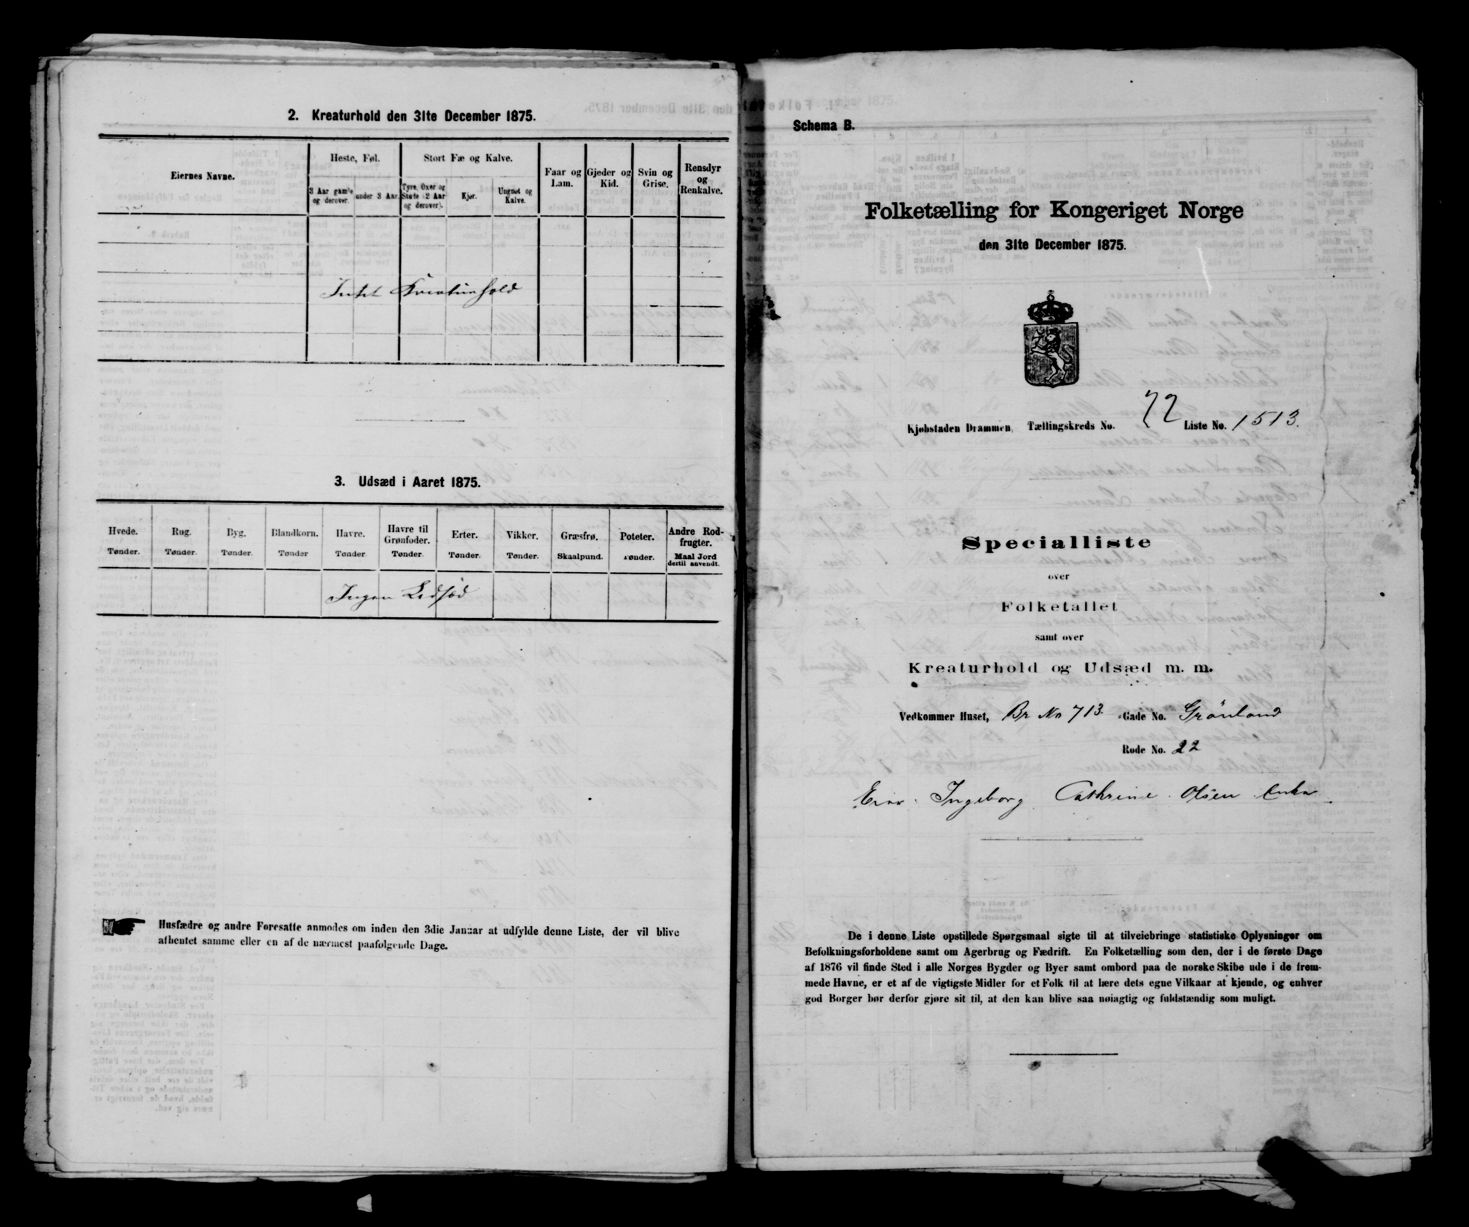 2. Kreaturhold den 31te December 1875.
Eiernes Navne.
Heste, Føl.
Stort Fæ og Kalve.
Faar og Lam.
Gjeder og Kid.
Svin og Grise.
Rensdyr og Renkalve.
3 Aar gamle og derover.
under 3 Aar.
Tyre, Oxer og Stude (2 Aar og derover).
Kjør.
Ungnøt og Kalve.
Intet Kreaturhold
3. Udsæd i Aaret 1875.
Hvede. Rug. Byg. Blandkorn. Havre. Havre til Grønfoder. Erter. Vikker. Græsfrø. Poteter. Andre Rodfrugter.
Tønder. Tønder. Tønder. Tønder Tønder Tønder. Tønder. Tønder. Skaalpund. Tønder. Maal Jord dertil anvendt.
Ingen Udsæd
Husfædre og andre Foresatte anmodes om inden den 3die Januar at udfylde denne Liste, der vil blive
afhentet samme eller en af de nærmest paafølgende Dage.
Schema B.
Folketælling for Kongeriget Norge
den 31te December 1875.
Kjøbstaden Drammen, Tællingskreds No. 22 Liste No. 1513.
Specialliste
over
Folketallet
samt over
Kreaturhold og Udsæd m. m.
Vedkommer Huset, Br No 713 Gade No. Grönland
Rode No. 22
Eier: Ingeborg Cathrine Olsen Enke
De i denne Liste opstillede Spørgsmaal sigte til at tilveiebringe statistiske Oplysninger om
Befolkningsforholdene samt om Agerbrug og Fædrift. En Folketælling som den, der i de første Dage
af 1876 vil finde Sted i alle Norges Bygder og Byer samt ombord paa de norske Skibe ude i de frem-
mede Havne, er et af de vigtigste Midler for et Folk til at lære dets egne Vilkaar at kjende, og enhver
god Borger bør derfor gjøre sit til, at den kan blive saa nøiagtig og fuldstændig som muligt.